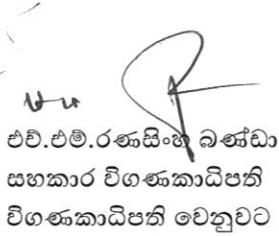 එච්.එම්.රණසිංහ බණ්ඩා
සහකාර විගණකාධිපති
විගණකාධිපති වෙනුවට